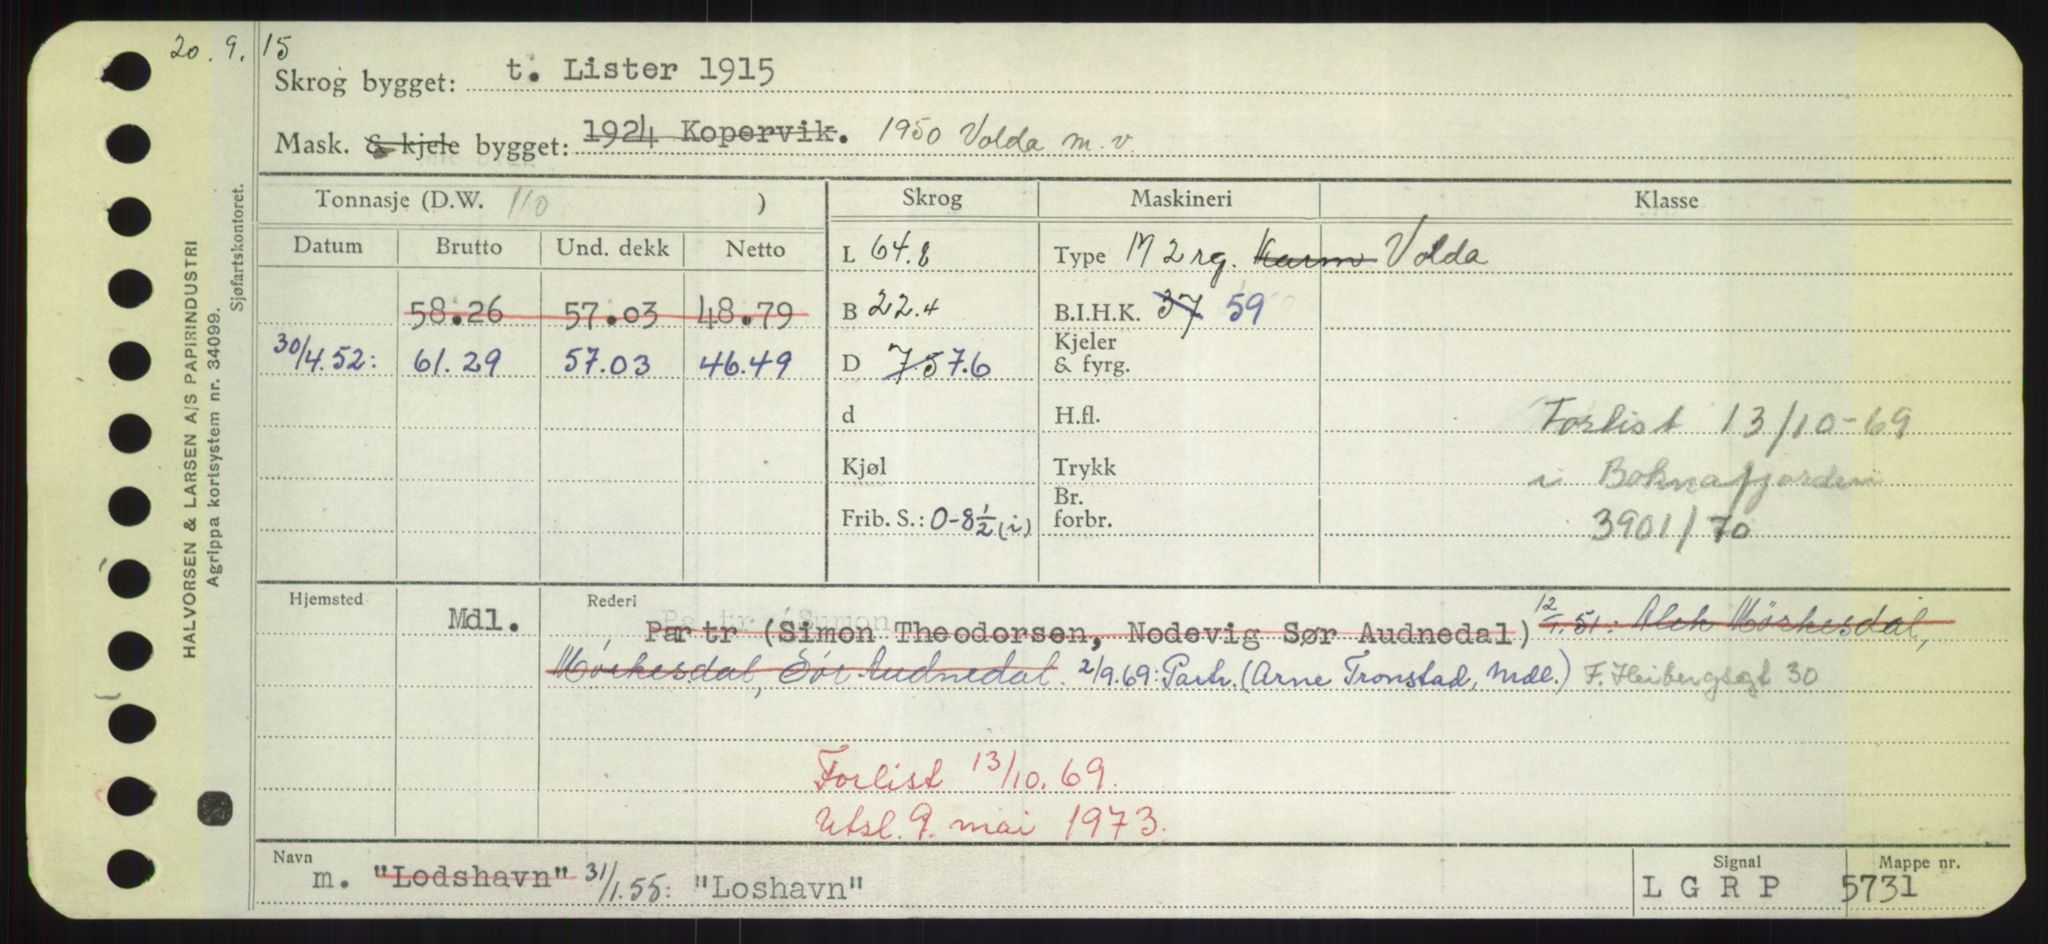 20.9.15
Skrog bygget: t. Lister 1915
Mask. & kjele bygget: 1924 Kopervik. 1950 Volda m.v.
Tonnasje (D.W. 110 ) Skrog Maskineri Klasse
Datum Brutto Und. dekk Netto L 64.8 Type M 2 rg. Karm Volda
58.26 57.03 48.79 B 22.4 B.I.H.K. 37 59
30/4.52: 61.29 57.03 46.49 D 75 7.6 Kjeler & fyrg.
d H.fl. Forlist 13/10-69
Kjøl Trykk i Boknafjorden
Frib. S.: 0-8½ (i) Br. forbr. 3901/70
Hjemsted Mdl. Rederi Partr (Simon Theodorsen, Nodevig Sør Audnedal) 12/1.51: Alek Mørkesdal,
Mørkesdal, Sør Audnedal. 2/9.69: Partr. (Arne Tronstad, Mdl.) F. Heibergsgt 30
Forlist 13/10.69.
Utsl. 9. mai 1973.
Navn m. "Lodshavn" 31/1.55: "Loshavn" Signal LGRP Mappe nr. 5731
HALVORSEN & LARSEN A/S PAPIRINDUSTRI
Agrippa kortsystem nr. 34099.
Sjøfartskontoret.